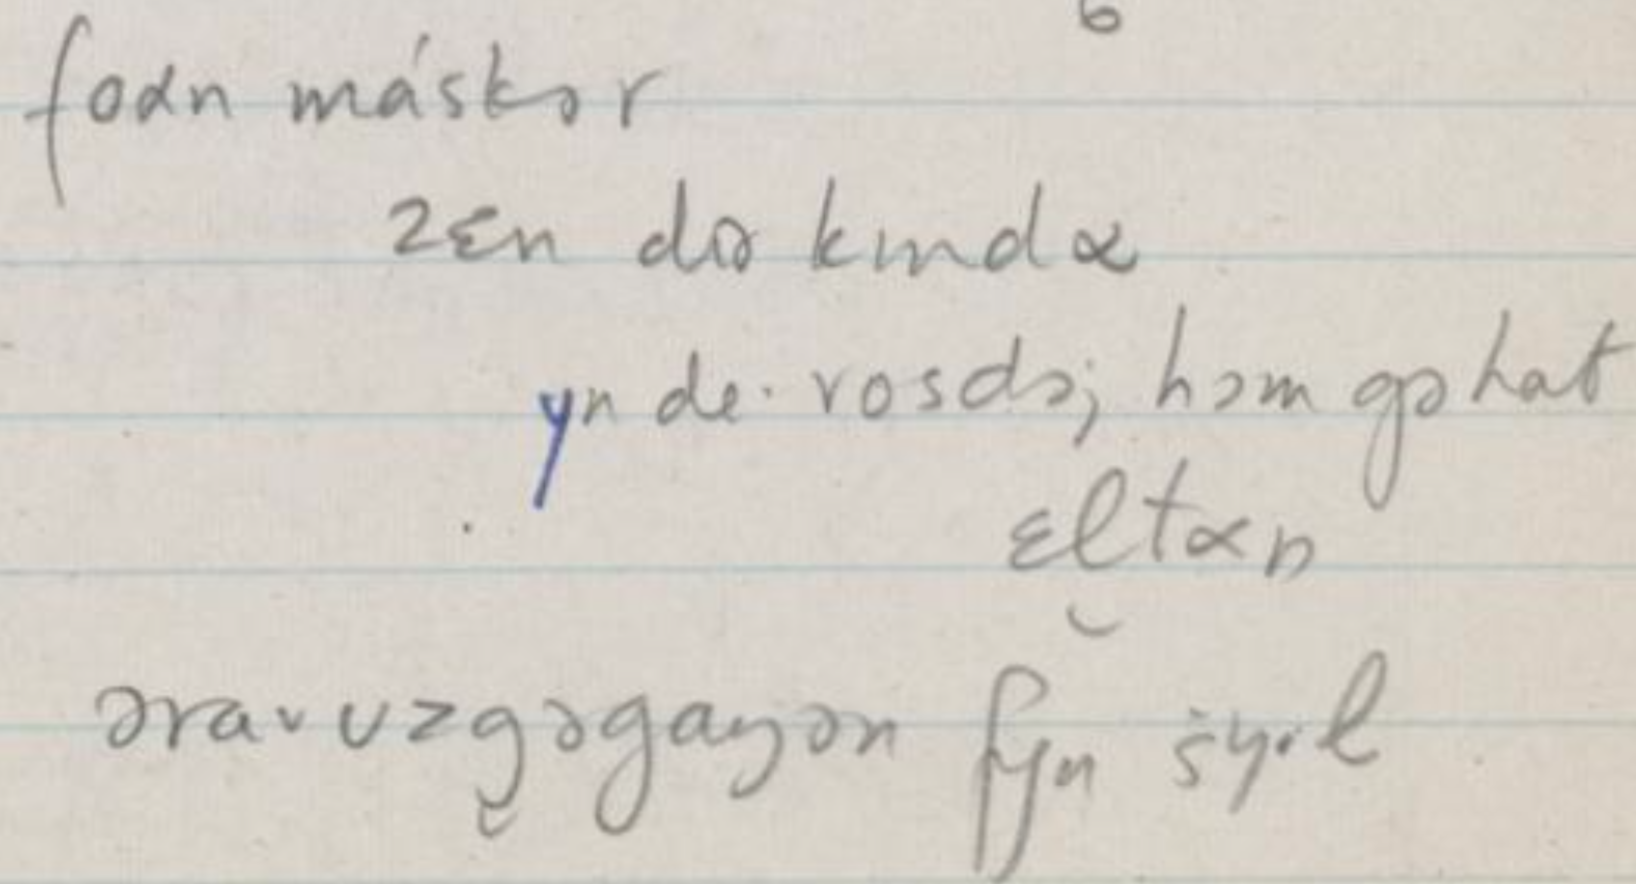 6
foαn máskər
zɛn diə kındα
yn de· rosdə; həm gəhat
ɛltαn
əra·vʊzg̮əgaŋən fyn šy·l